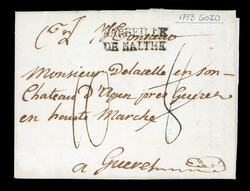 1793 GOZO
MARSEILLE
DE MALTHE
Monsieur Delacelle en son
Chateau d'Ajen près Gueret
en haute Marche
a Gueret